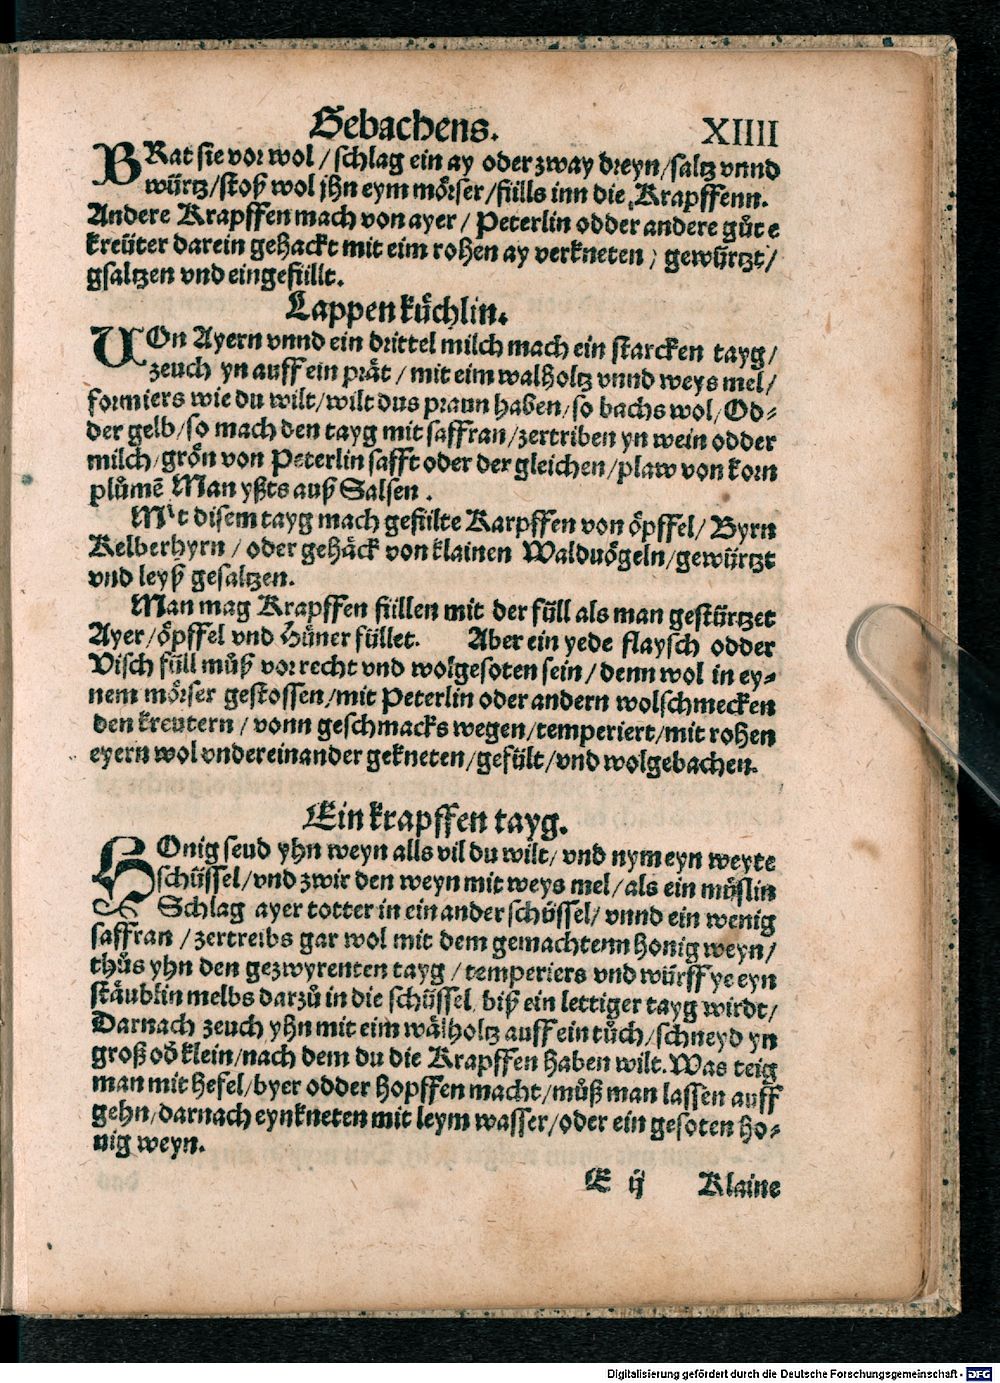 Gebachens. XIIII
BRat sie vor wol / schlag ein ay oder zway dreyn / saltz vnnd
würtz / stoß wol jhn eym moͤrser / fülls inn die Krapffenn.
Andere Krapffen mach von ayer / Peterlin odder andere guͦte
kreüter darein gehackt mit eim rohen ay verkneten / gewürtzt /
gsaltzen vnd eingefüllt.
Lappen küchlin.
VOn Ayern vnnd ein drittel milch mach ein starcken tayg /
zeuch yn auff ein prät / mit eim walholtz vnnd weys mel /
formiers wie du wilt / wilt dus praun haben / so bachs wol / Od⸗
der gelb / so mach den tayg mit saffran / zertriben yn wein odder
milch / groͤn von Peterlin safft oder der gleichen / plaw von korn
pluͦmē Man yßts auß Salsen .
Mit disem tayg mach gefülte Karpffen von oͤpffel / Byrn
Kelberhyrn / oder gehäck von klainen Walduoͤgeln / gewürtzt
vnd leyß gesaltzen.
Man mag Krapffen füllen mit der füll als man gestürtzet
Ayer / oͤpffel vnd Hüner füllet. Aber ein yede flaysch odder
Visch füll muͦß vor recht vnd wolgesoten sein / denn wol in ey⸗
nem moͤrser gestossen / mit Peterlin oder andern wolschmecken
den kreutern / vonn geschmacks wegen / temperiert / mit rohen
eyern wol vndereinander gekneten / gefült / vnd wolgebachen.
Ein krapffen tayg.
HOnig seud yhn weyn alls vil du wilt / vnd nym eyn weyte
schüssel / vnd zwir den weyn mit weys mel / als ein müslin
Schlag ayer totter in ein ander schüssel / vnnd ein wenig
saffran / zertreibs gar wol mit dem gemachtenn honig weyn /
thuͦs yhn den gezwyrenten tayg / temperiers vnd würff ye eyn
stäublin melbs darzuͦ in die schüssel / biß ein lettiger tayg wirdt /
Darnach zeuch yhn mit eim wälholtz auff ein tuͦch / schneyd yn
groß od̕ klein / nach dem du die Krapffen haben wilt. Was teig
man mit hefel / byer odder hopffen macht / muͦß man lassen auff
gehn / darnach eynkneten mit leym wasser / oder ein gesoten ho⸗
nig weyn.
E ij Klaine
Digitalisierung gefördert durch die Deutsche Forschungsgemeinschaft - DFG